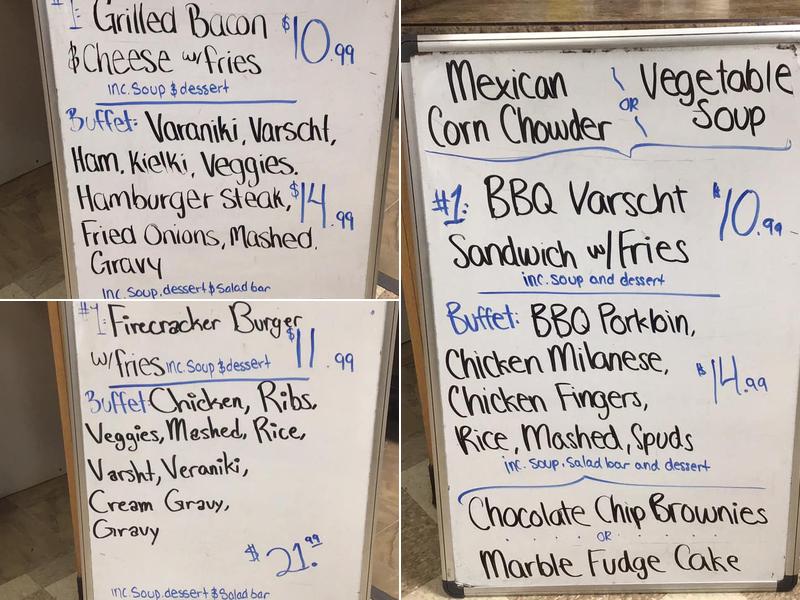 #1: Grilled Bacon $10.99
$ Cheese w/fries
inc. Soup $ dessert
Buffet: Varaniki, Varscht,
Ham, Kielki, Veggies.
Hamburger Steak, $14.99
Fried Onions, Mashed.
Gravy
inc. Soup, dessert $ Salad bar
#1: Firecracker Burger
w/fries inc. Soup $ dessert $11.99
Buffet: Chicken, Ribs.
Veggies, Mashed, Rice,
Varsht, Veraniki,
Cream Gravy,
Gravy
$21.99
inc. Soup, dessert $ Salad bar
Mexican OR Vegetable
Corn Chowder Soup
#1: BBQ Varscht $10.99
Sandwich w/Fries
inc. soup and dessert
Buffet: BBQ Porkloin,
Chicken Milanese, $14.99
Chicken Fingers,
Rice, Mashed, Spuds
inc. Soup, Salad bar and dessert
Chocolate Chip Brownies
OR
Marble Fudge Cake